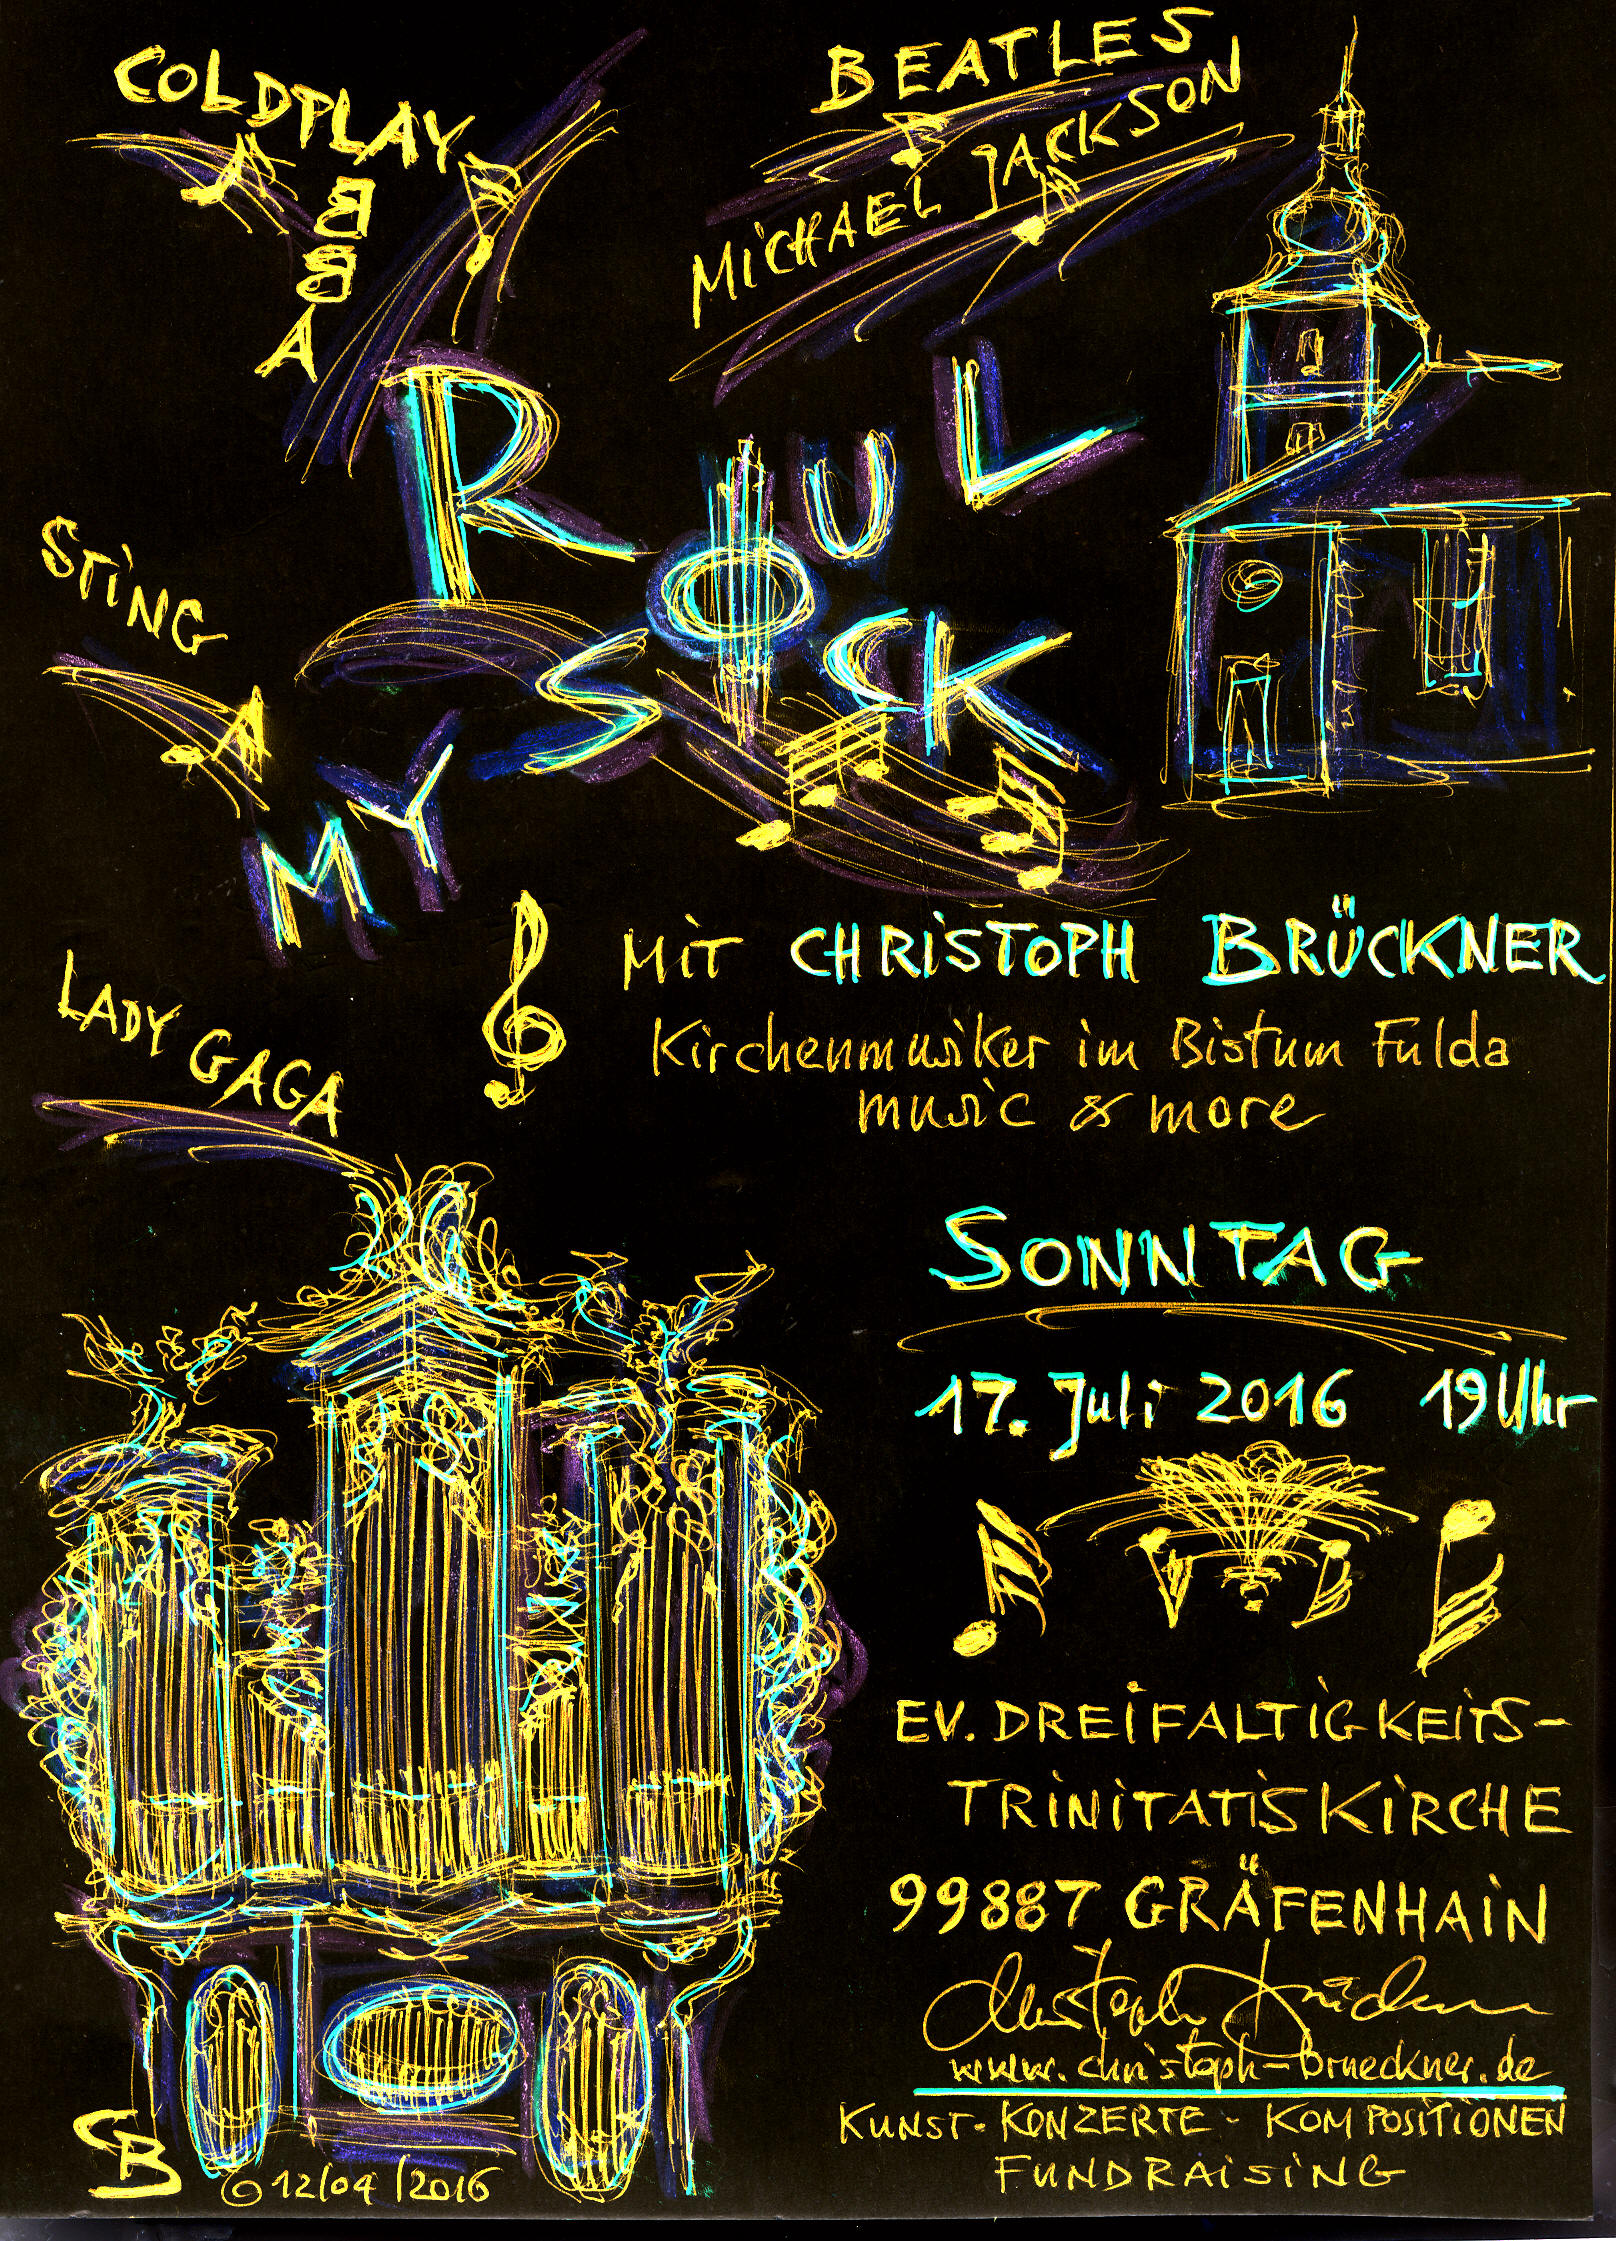 COLDPLAY
ABBA
BEATLES
MICHAEL JACKSON
STING
LADY GAGA
ROCK
MY SOUL
MIT CHRISTOPH BRÜCKNER
Kirchenmusiker im Bistum Fulda
music & more
SONNTAG
17. Juli 2016 19 Uhr
EV. DREIFALTIGKEITS-
TRINITATISKIRCHE
99887 GRÄFENHAIN
Christoph Brückner
www.christoph-brueckner.de
KUNST - KONZERTE - KOMPOSITIONEN
FUNDRAISING
CB
© 12/04/2016